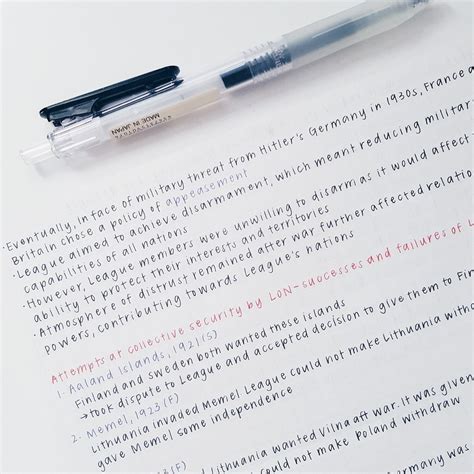 MADE IN JAPAN
·Eventually, in face of military threat from Hitler's Germany in 1930s, France a
Britain chose a policy of appeasement
·League aimed to achieve disarmament, which meant reducing militar
capabilities of all nations
·However, League members were unwilling to disarm as it would affect
ability to protect their interests and territories
·Atmosphere of distrust remained after war further affected relatio
powers, contributing towards League's nations
Attempts at collective security by LON-successes and failures of L
1. Aaland Islands, 1921(S)
Finland and Sweden both wanted these islands
→took dispute to League and accepted decision to give them to Fin
2. Memel, 1923(F)
Lithuania invaded Memel League could not make Lithuania witho
gave Memel some independence
(F)
Lithuania wanted Vilna aft war. It was given
could not make Poland withdraw